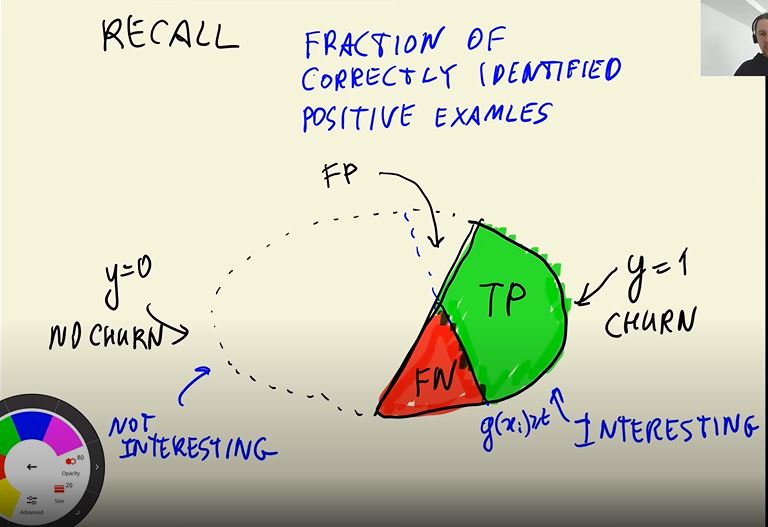 RECALL
FRACTION OF
CORRECTLY IDENTIFIED
POSITIVE EXAMLES
FP
y=0
NO CHURN
TP
y=1
CHURN
FN
g(xi)≥t
INTERESTING
NOT
INTERESTING
80
Opacity
20
Size
Advanced